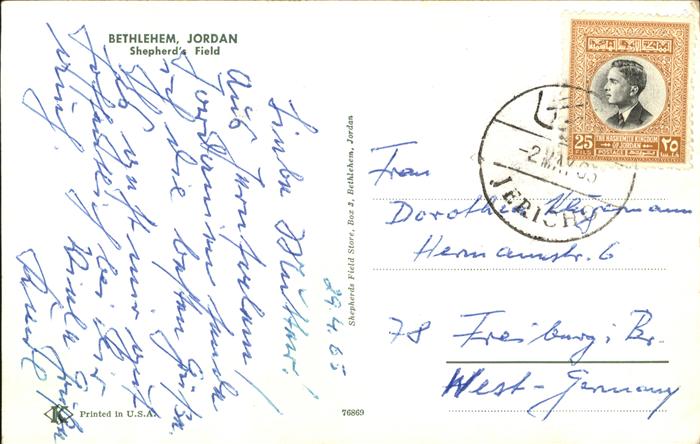 BETHLEHEM, JORDAN
Shepherd's Field
29.4.65
Liebe Mutter!
Aus Jerusalem /
Jordanien sende
ich die besten Grüße.
Es geht mir gut
Viele Grüße
Shepherds Field Store, Box 3, Bethlehem, Jordan
Printed in U.S.A.
76869
K
المملكة الاردنية الهاشمية
25
FILS
THE HASHEMITE KINGDOM
OF JORDAN
POSTAGE
٢٥
-2 MAY 65
JERICHO
Frau
Dorothea
Hermannstr. 6
78 Freiburg i. Br.
West-Germany